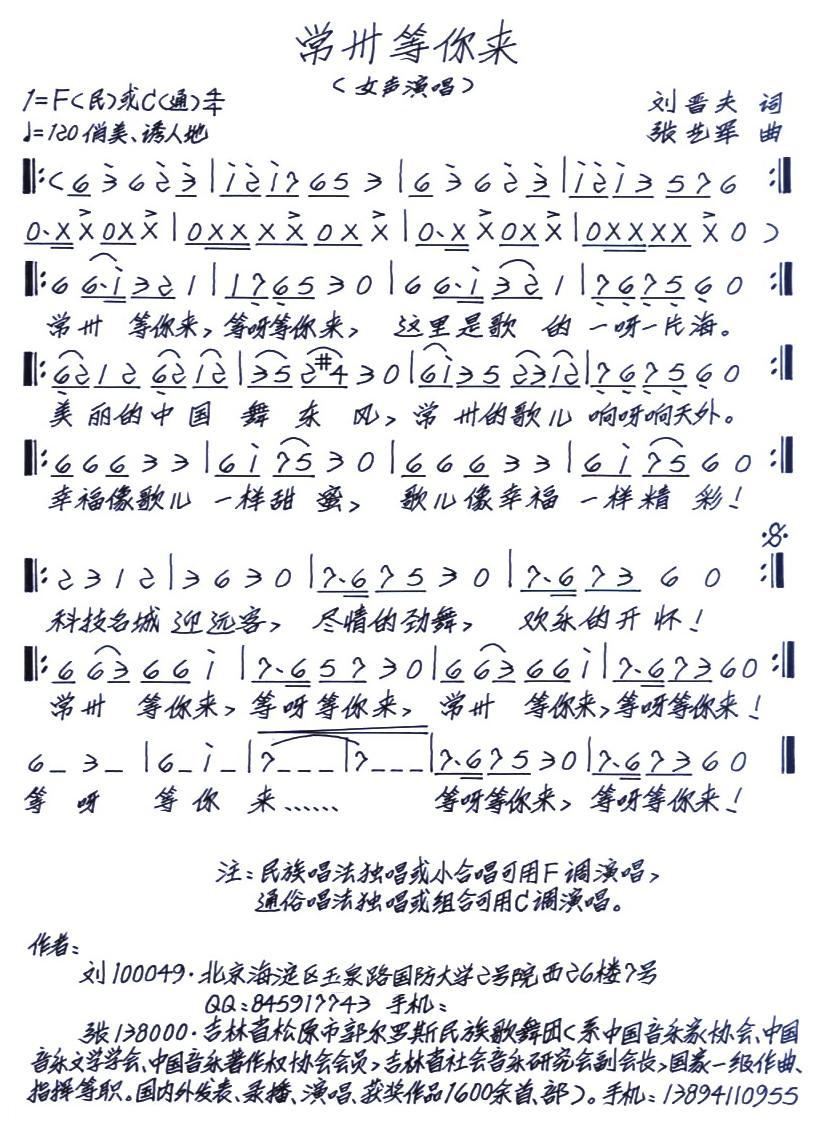 常州等你来
（女声演唱）
1=F（民）或C（通）4/4
刘晋夫 词
♩=120 俏美、诱人地
张艺军 曲
‖:（6 3 6 2 3 | i 2 i 7 6 5 3 | 6 3 6 2 3 | i 2 i 3 5 7 6 :‖
0·X X 0X X | 0XX X X 0 X X | 0·X X 0X X | 0XXXXX X 0 ）
‖: 6 6·i 3 2 1 | 1 7 6 5 3 0 | 6 6·i 3 2 1 | 7 6 7 5 6 0 :‖
常州 等你来，等呀等你来， 这里是歌 的 一呀一片海。
‖: 6 2 1 2 6 2 1 2 | 3 5 2 #4 3 0 | 6 i 3 5 2 3 1 2 | 7 6 7 5 6 0 :‖
美丽的中国 舞东风，常州的歌儿 响呀响天外。
‖: 6 6 6 3 3 | 6 i 7 5 3 0 | 6 6 6 3 3 | 6 i 7 5 6 0 :‖
幸福像歌儿 一样甜 蜜， 歌儿像幸福 一样精 彩！
𝄋
‖: 2 3 1 2 | 3 6 3 0 | 7·6 7 5 3 0 | 7·6 7 3 6 0 :‖
科技名城 迎远客， 尽情的劲舞， 欢乐的开怀！
‖: 6 6 3 6 6 i | 7·6 5 7 3 0 | 6 6 3 6 6 i | 7·6 7 3 6 0 :‖
常州 等你来，等呀等你来，常州 等你来，等呀等你来！
6 _ 3 _ | 6 _ i _ | 7 _ _ _ | 7 _ _ _ | 7·6 7 5 3 0 | 7·6 7 3 6 0 ‖
等 呀 等 你 来…… 等呀等你来，等呀等你来！
注：民族唱法独唱或小合唱可用F调演唱，
通俗唱法独唱或组合可用C调演唱。
作者：
刘100049·北京海淀区玉泉路国防大学2号院西26楼7号
QQ：845917743 手机：
张138000·吉林省松原市郭尔罗斯民族歌舞团（系中国音乐家协会、中国
音乐文学学会、中国音乐著作权协会会员，吉林省社会音乐研究会副会长，国家一级作曲、
指挥等职。国内外发表、录播、演唱、获奖作品1600余首、部）。手机：13894110955